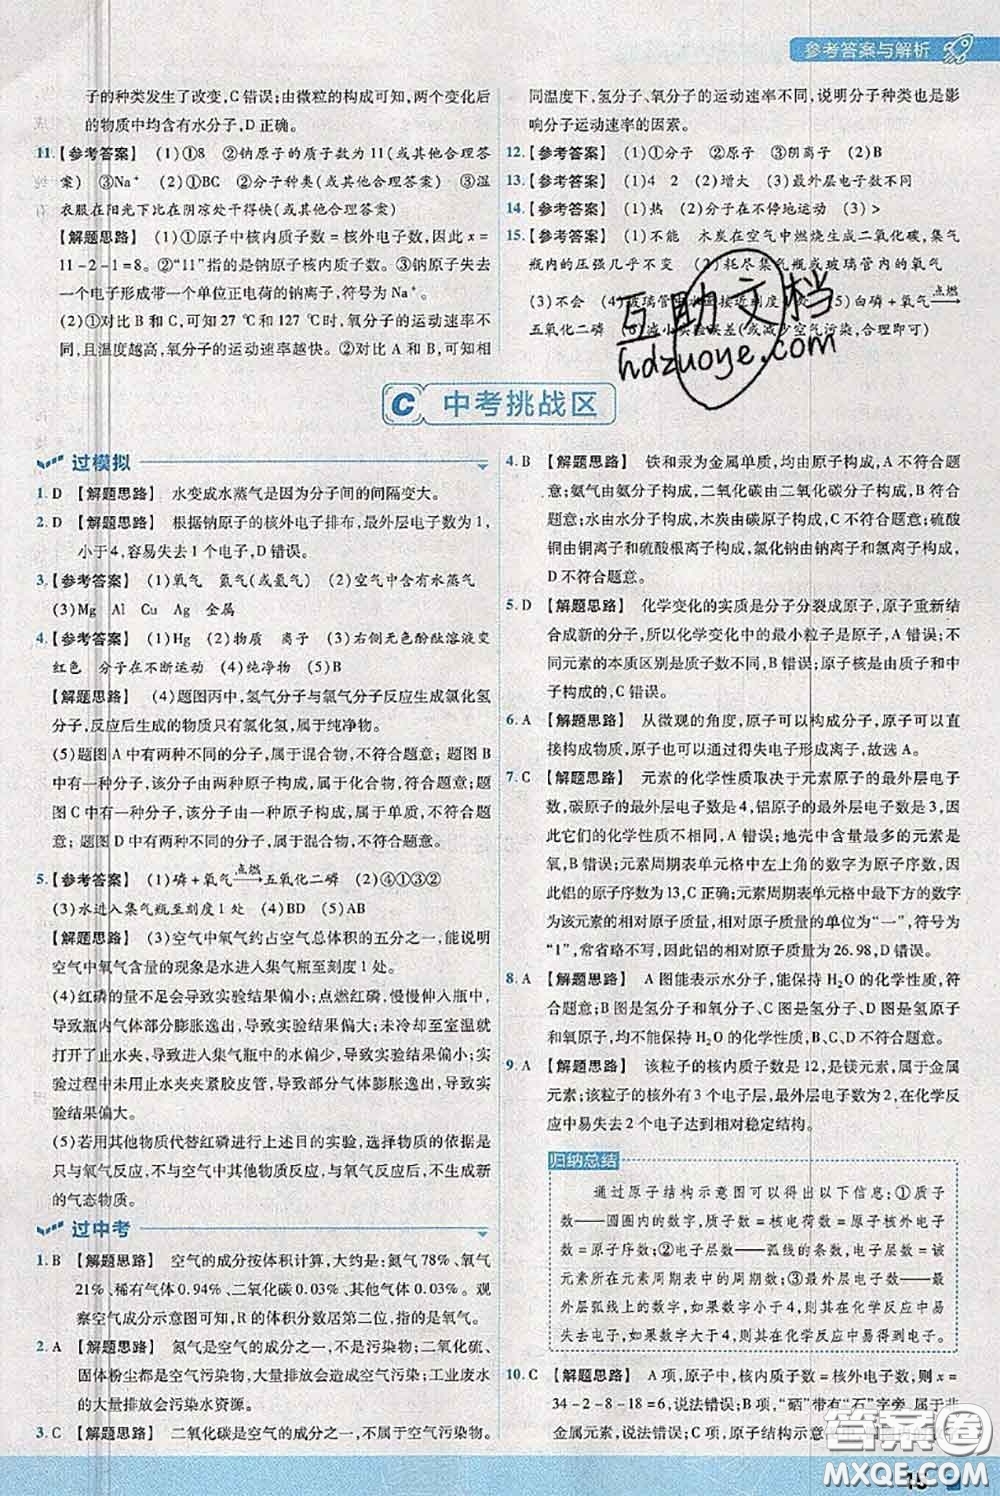 参考答案与解析
子的种类发生了改变,C错误;由微粒的构成可知,两个变化后
的物质中均含有水分子,D正确。
11.【参考答案】 (1)①8 ②钠原子的质子数为11(或其他合理答
案) ③Na⁺ (2)①BC ②分子种类(或其他合理答案) ③湿
衣服在阳光下比在阴凉处干得快(或其他合理答案)
【解题思路】 (1)①原子中核内质子数=核外电子数,因此x=
11-2-1=8。②“11”指的是钠原子核内质子数。③钠原子失去
一个电子形成带一个单位正电荷的钠离子,符号为Na⁺。
(2)①对比B和C,可知27 ℃和127 ℃时,氧分子的运动速率不
同,且温度越高,氧分子的运动速率越快。②对比A和B,可知相
同温度下,氢分子、氧分子的运动速率不同,说明分子种类也是影
响分子运动速率的因素。
12.【参考答案】 (1)①分子 ②原子 ③阴离子 (2)B
13.【参考答案】 (1)4 2 (2)增大 (3)最外层电子数不同
14.【参考答案】 (1)热 (2)分子在不停地运动 (3)>
15.【参考答案】 (1)不能 木炭在空气中燃烧生成二氧化碳,集气
瓶内的压强几乎不变 (2)耗尽集气瓶或玻璃管内的氧气
(3)不会 (4)玻璃管中水面接近刻度 (5)白磷+氧气 点燃
五氧化二磷 (6)减小实验误差(或减少空气污染,合理即可)
互助文档
hdzuoye.com
C 中考挑战区
过模拟
1. D 【解题思路】 水变成水蒸气是因为分子间的间隔变大。
2. D 【解题思路】 根据钠原子的核外电子排布,最外层电子数为1,
小于4,容易失去1个电子,D错误。
3.【参考答案】 (1)氧气 氦气(或氩气) (2)空气中含有水蒸气
(3)Mg Al Cu Ag 金属
4.【参考答案】 (1)Hg (2)物质 离子 (3)右侧无色酚酞溶液变
红色 分子在不断运动 (4)纯净物 (5)B
【解题思路】 (4)题图丙中,氢气分子与氯气分子反应生成氯化氢
分子,反应后生成的物质只有氯化氢,属于纯净物。
(5)题图A中有两种不同的分子,属于混合物,不符合题意;题图B
中有一种分子,该分子由两种原子构成,属于化合物,符合题意;题
图C中有一种分子,该分子由一种原子构成,属于单质,不符合题
意;题图D中有两种不同的分子,属于混合物,不符合题意。
5.【参考答案】 (1)磷+氧气 点燃→ 五氧化二磷 (2)④①③②
(3)水进入集气瓶至刻度1处 (4)BD (5)AB
【解题思路】 (3)空气中氧气约占空气总体积的五分之一,能说明
空气中氧气含量的现象是水进入集气瓶至刻度1处。
(4)红磷的量不足会导致实验结果偏小;点燃红磷,慢慢伸入瓶中,
导致瓶内气体部分膨胀逸出,导致实验结果偏大;未冷却至室温就
打开了止水夹,导致进入集气瓶中的水偏少,导致实验结果偏小;实
验过程中未用止水夹夹紧胶皮管,导致部分气体膨胀逸出,导致实
验结果偏大。
(5)若用其他物质代替红磷进行上述目的实验,选择物质的依据是
只与氧气反应,不与空气中其他物质反应,与氧气反应,不生成新
的气态物质。
过中考
1. B 【解题思路】 空气的成分按体积计算,大约是:氮气78%、氧气
21%、稀有气体0.94%、二氧化碳0.03%、其他气体0.03%。观
察空气成分示意图可知,R的体积分数居第二位,指的是氧气。
2. A 【解题思路】 氮气是空气的成分之一,不是污染物;二氧化硫、
固体粉尘都是空气污染物,大量排放会污染空气;工业废水
的大量排放会污染水资源。
3. C 【解题思路】 二氧化碳是空气的成分之一,不属于空气污染物。
4. B 【解题思路】 铁和汞为金属单质,均由原子构成,A不符合题
意;氨气由氨分子构成,二氧化碳由二氧化碳分子构成,B符合
题意;水由水分子构成,木炭由碳原子构成,C不符合题意;硫酸
铜由铜离子和硫酸根离子构成,氯化钠由钠离子和氯离子构成,
D不符合题意。
5. D 【解题思路】 化学变化的实质是分子分裂成原子,原子重新结
合成新的分子,所以化学变化中的最小粒子是原子,A错误;不
同元素的本质区别是质子数不同,B错误;原子核是由质子和中
子构成的,C错误。
6. A 【解题思路】 从微观的角度,原子可以构成分子,原子可以直
接构成物质,原子也可以通过得失电子形成离子,故选A。
7. C 【解题思路】 元素的化学性质取决于元素原子的最外层电子
数,碳原子的最外层电子数是4,铝原子的最外层电子数是3,因
此它们的化学性质不相同,A错误;地壳中含量最多的元素是
氧,B错误;元素周期表单元格中左上角的数字为原子序数,因
此铝的原子序数为13,C正确;元素周期表单元格中最下方的数字
为该元素的相对原子质量,相对原子质量的单位为“一”,符号为
“1”,常省略不写,因此铝的相对原子质量为26.98,D错误。
8. A 【解题思路】 A图能表示水分子,能保持H₂O的化学性质,符
合题意;B图是氢分子和氧分子、C图是氢原子、D图是氢原子
和氧原子,均不能保持H₂O的化学性质,不符合题意。
9. A 【解题思路】 该粒子的核内质子数是12,是镁元素,属于金属
元素;该粒子的核外有3个电子层,最外层电子数为2,在化学反
应中易失去2个电子达到相对稳定结构。
归纳总结
通过原子结构示意图可以得出以下信息:①质子
数——圆圈内的数字,质子数=核电荷数=原子核外电子
数=原子序数;②电子层数——弧线的条数,电子层数=该
元素周期表中的周期数;③最外层电子数——离核最远一
层弧线上的数字,如果数字小于4,则其在化学反应中易
失去电子,如果数字大于4,则其在化学反应中易得到电子。
10. C 【解题思路】 A项,原子中,核内质子数=核外电子数,则x=
34-2-8-18=6,说法错误;B项,“硒”带有“石”字旁,属于非
金属元素,说法错误;C项,原子结构示意
15
答案圈
MXQE.COM